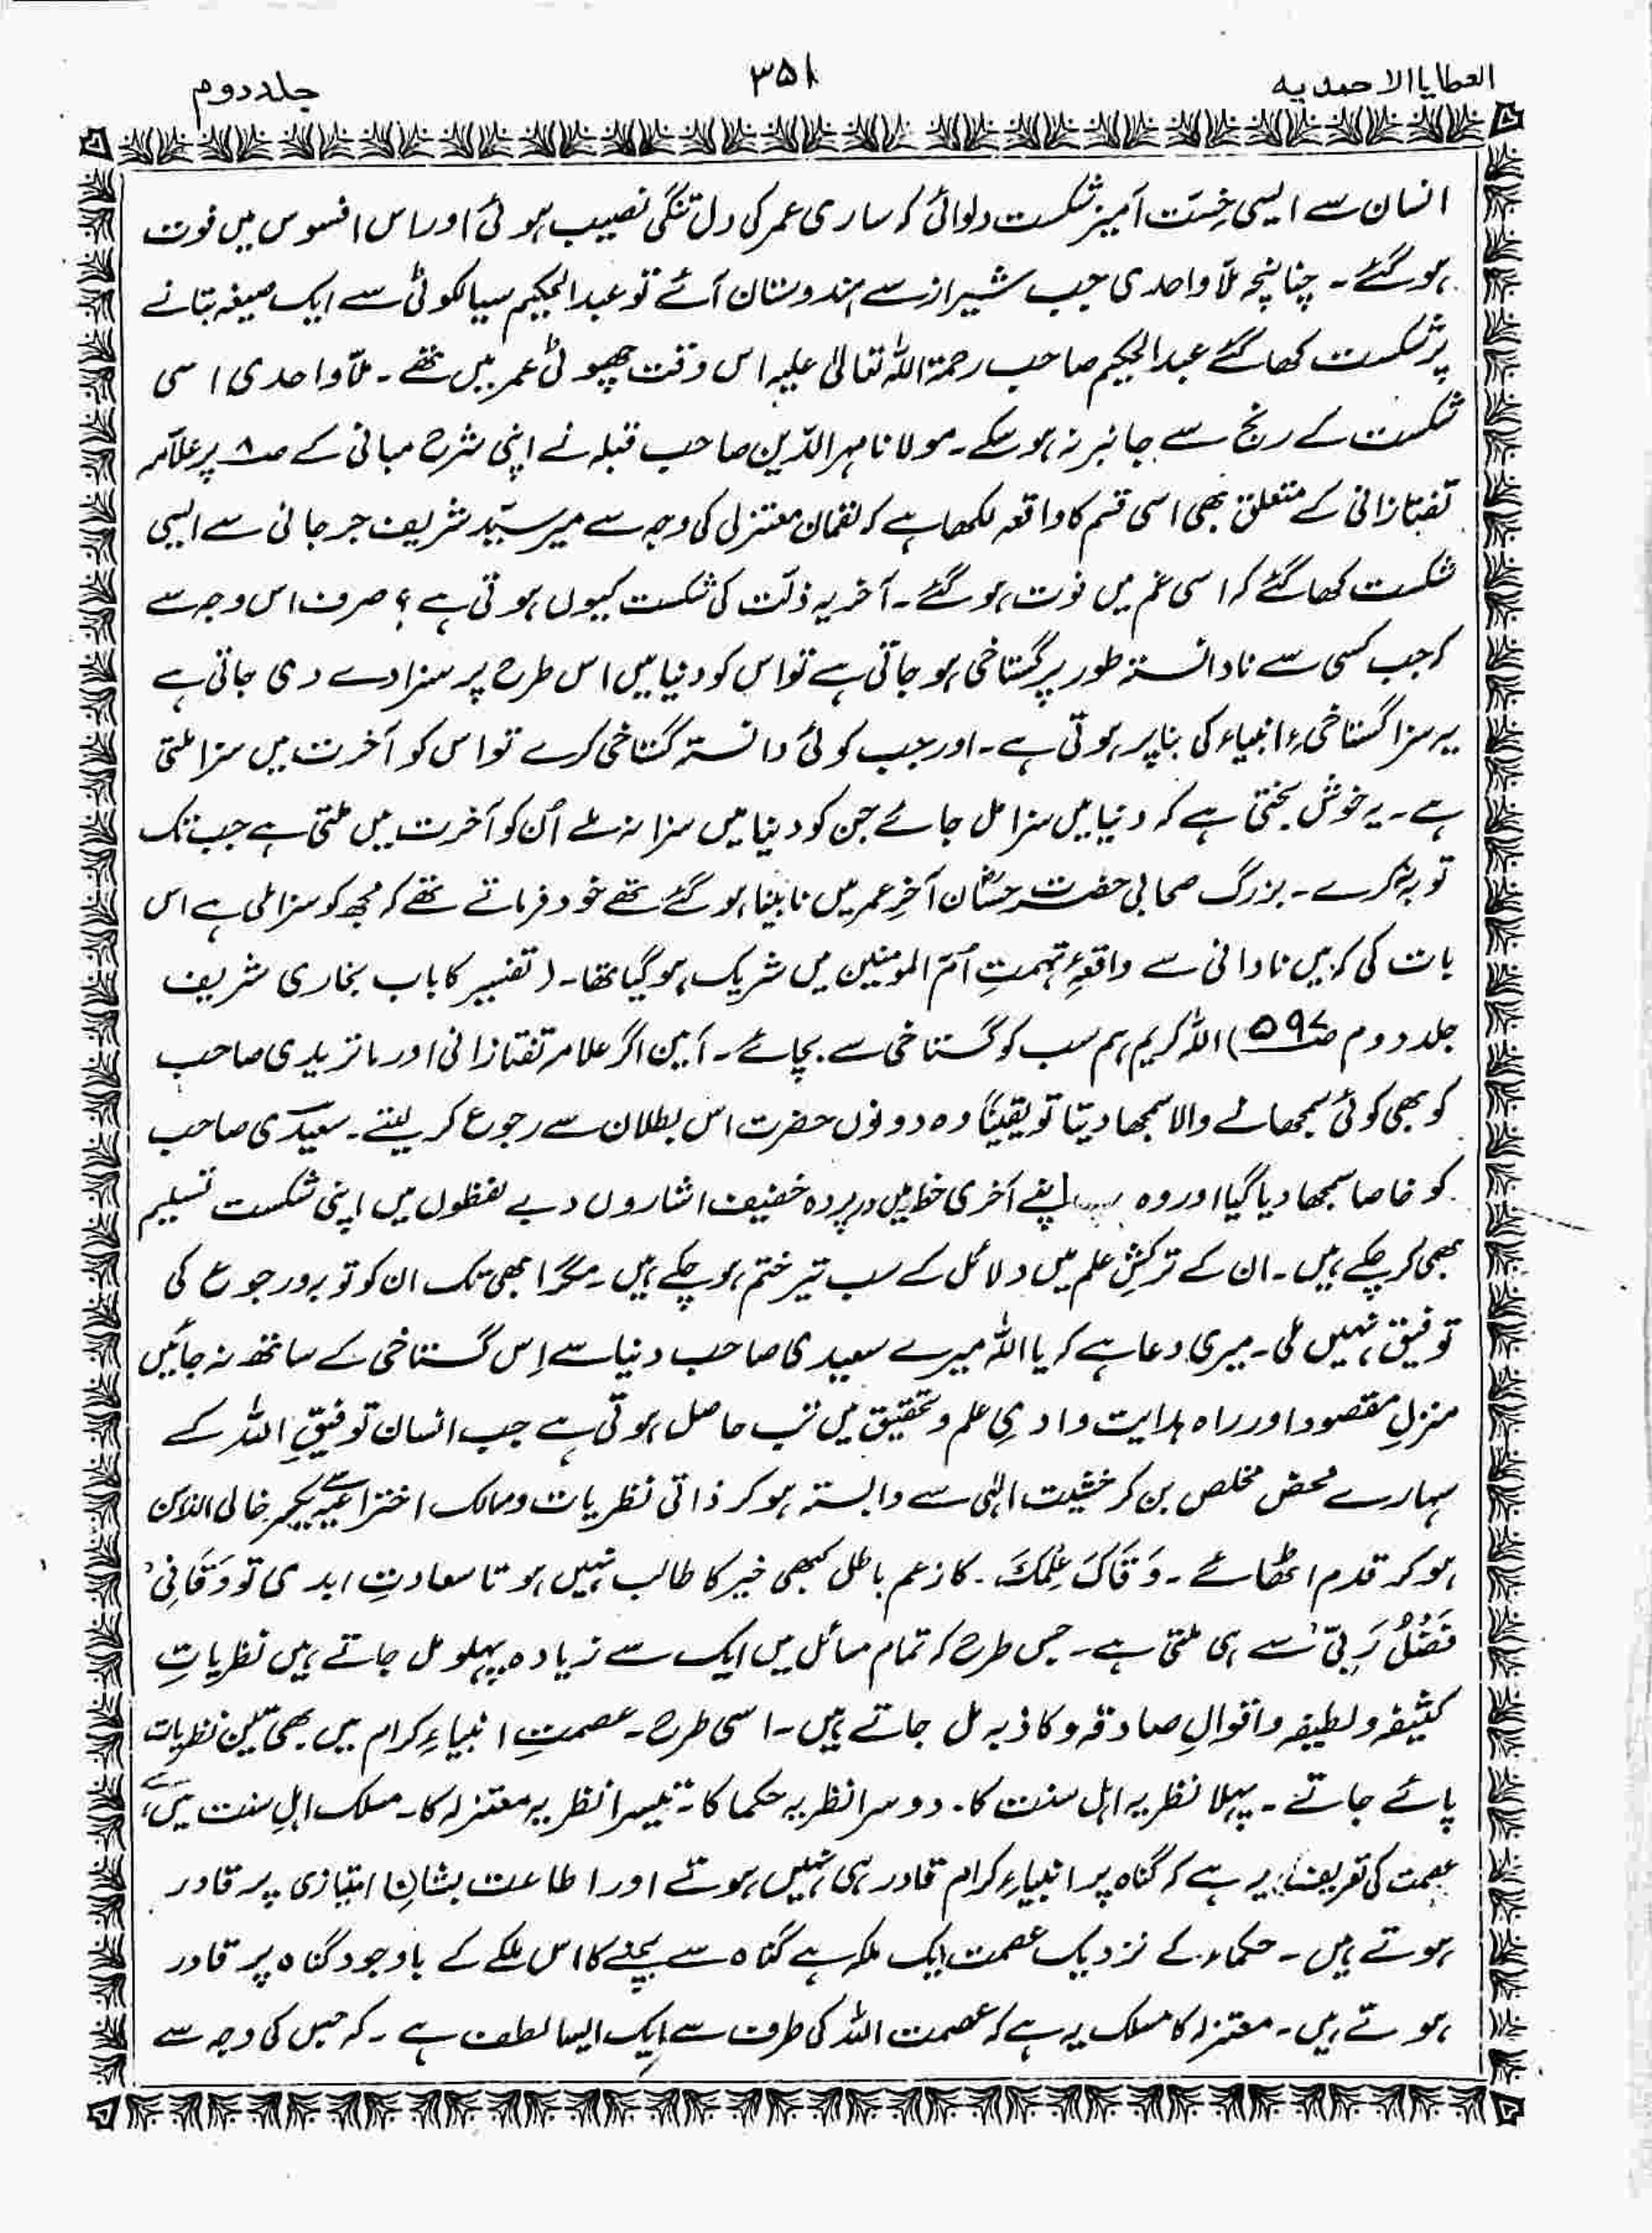 العطایا الاحمدیہ
۳۵۱
جلد دوم
انسان سے ایسی خِسّت آمیز شکست دلوائی کہ ساری عمر کی دل تنگی نصیب ہوئی اور اس افسوس میں فوت
ہو گئے۔ چنانچہ ملّا واحدی جب شیراز سے ہندوستان آئے تو عبدالحکیم سیالکوٹی سے ایک صیغہ بتانے
پر شکست کھا گئے عبدالحکیم صاحب رحمۃ اللہ تعالیٰ علیہ اس وقت چھوٹی عمر میں تھے۔ ملّا واحدی اسی
شکست کے رنج سے جانبر نہ ہو سکے۔ مولانا مہر الدّین صاحب قبلہ نے اپنی شرح مبانی کے صـ۸ پر علّامہ
تفتازانی کے متعلق بھی اسی قسم کا واقعہ لکھا ہے کہ نعمان معتزلی کی وجہ سے میر سیّد شریف جرجانی سے ایسی
شکست کھا گئے کہ اسی غم میں فوت ہو گئے۔ آخر یہ ذلّت کی شکست کیوں ہوتی ہے؟ صرف اس وجہ سے
کہ جب کسی سے نادانستہ طور پر گستاخی ہو جاتی ہے تو اس کو دنیا میں اس طرح پر سزا دے دی جاتی ہے
یہ سزا گستاخیِ انبیاء کی بنا پر ہوتی ہے۔ اور جب کوئی دانستہ گستاخی کرے تو اس کو آخرت میں سزا ملتی
ہے۔ یہ خوش بختی ہے کہ دنیا میں سزا مل جائے جن کو دنیا میں سزا نہ ملے اُن کو آخرت میں ملتی ہے جب تک
توبہ نہ کرے۔ بزرگ صحابی حضرت حسّان آخرِ عمر میں نابینا ہو گئے تھے خود فرماتے تھے کہ مجھ کو سزا ملی ہے اس
بات کی کہ میں نادانی سے واقعۂِ تہمتِ اُمّ المومنین میں شریک ہو گیا تھا۔ (تفسیر کا باب بخاری شریف
جلد دوم صـ۵۹۷) اللہ کریم ہم سب کو گستاخی سے بچائے۔ آمین اگر علامہ تفتازانی اور ماتریدی صاحب
کو بھی کوئی سمجھانے والا سمجھا دیتا تو یقیناً وہ دونوں حضرت اس بطلان سے رجوع کر لیتے۔ سعیدی صاحب
کو خاصا سمجھا دیا گیا اور وہ اپنے آخری خط میں در پردہ خفیف اشاروں دبے لفظوں میں اپنی شکست تسلیم
بھی کر چکے ہیں۔ ان کے ترکشِ علم میں دلائل کے سب تیر ختم ہو چکے ہیں۔ مگر ابھی تک ان کو توبہ و رجوع کی
توفیق نہیں ملی۔ میری دعا ہے کہ یا اللہ میرے سعیدی صاحب دنیا سے اِس گستاخی کے ساتھ نہ جائیں
منزلِ مقصود اور راہ ہدایت وادیِ علم و تحقیق میں تب حاصل ہوتی ہے جب انسان توفیقِ اللہ کے
سہارے محض مخلص بن کر خشیت الٰہی سے وابستہ ہو کر ذاتی نظریات و مسالک اختراعیہ سے یکسر خالی الذہن
ہو کر قدم اٹھائے۔ وَقَاکَ عِلْمُکَ۔ کا زعم باطل کبھی خیر کا طالب نہیں ہوتا سعادتِ ابدی تو وَقَانِی
فَضْلُ رَبِّی سے ہی ملتی ہے۔ جس طرح کہ تمام مسائل میں ایک سے زیادہ پہلو مل جاتے ہیں نظریاتِ
کثیفہ و لطیفہ و اقوالِ صادقہ و کاذبہ مل جاتے ہیں۔ اسی طرح۔ عصمتِ انبیاءِ کرام میں بھی تین نظریات
پائے جاتے۔ پہلا نظریہ اہل سنت کا۔ دوسرا نظریہ حکما کا۔ تیسرا نظریہ معتزلہ کا۔ مسلک اہلِ سنت میں
عصمت کی تعریف یہ ہے کہ گناہ پر انبیاءِ کرام قادر ہی نہیں ہوتے اور اطاعت بشانِ امتیازی پر قادر
ہوتے ہیں۔ حکماء کے نزدیک عصمت ایک ملکہ ہے گناہ سے بچنے کا اس ملکے کے باوجود گناہ پر قادر
ہوتے ہیں۔ معتزلہ کا مسلک یہ ہے کہ عصمت اللہ کی طرف سے ایک ایسا لطف ہے۔ کہ جس کی وجہ سے